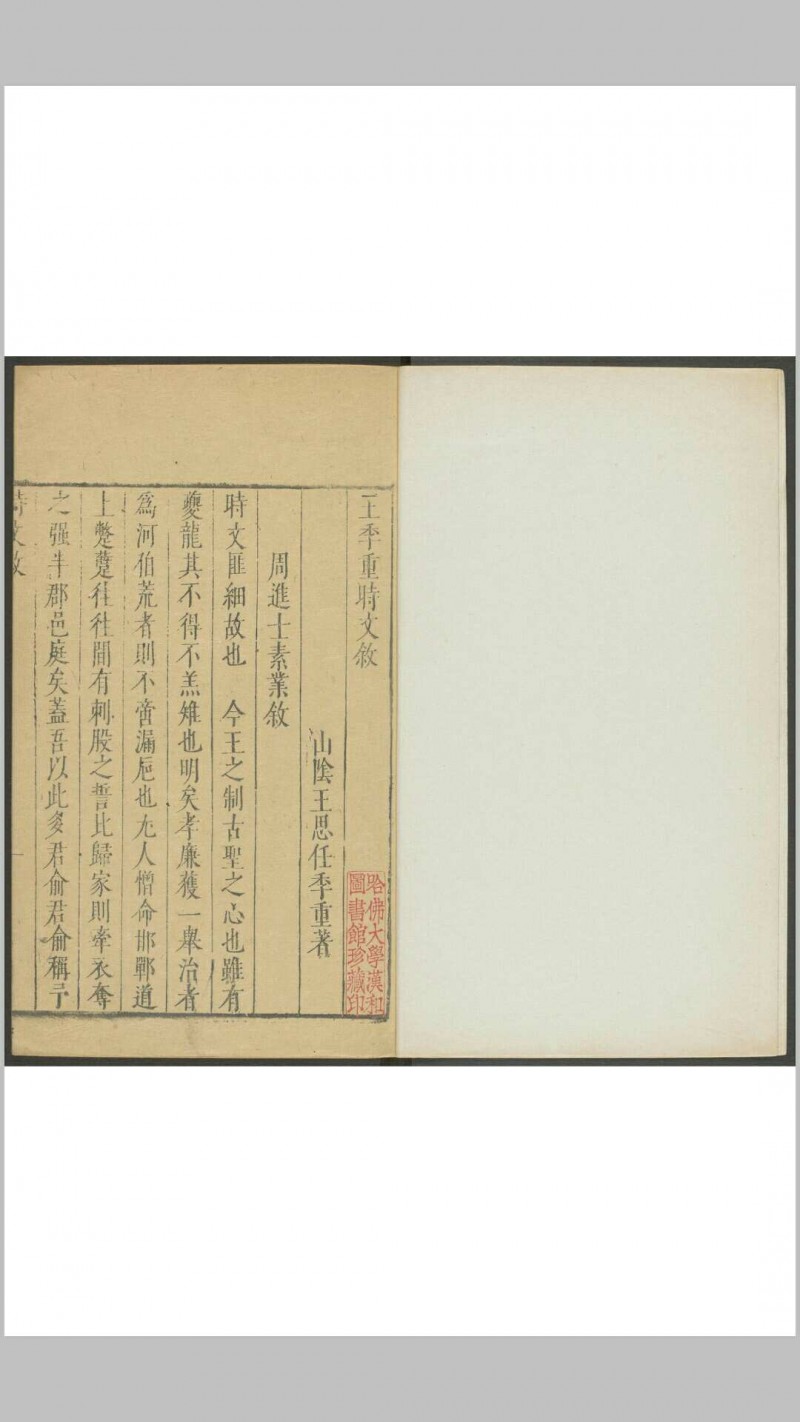 王季重時文敘
山陰王思任季重著
周進士素業敘
時文匪細故也　今王之制古聖之心也雖有
夔龍其不得不羔雉也明矣孝廉獲一舉治者
爲河伯荒者則不啻漏巵也尤人憎命邯鄲道
上蹩躠往往間有刺股之誓比歸家則牽衣奪
之强半郡邑庭矣蓋吾以此多君俞君俞稱予
時文敘
哈佛大學漢和
圖書館珍藏印